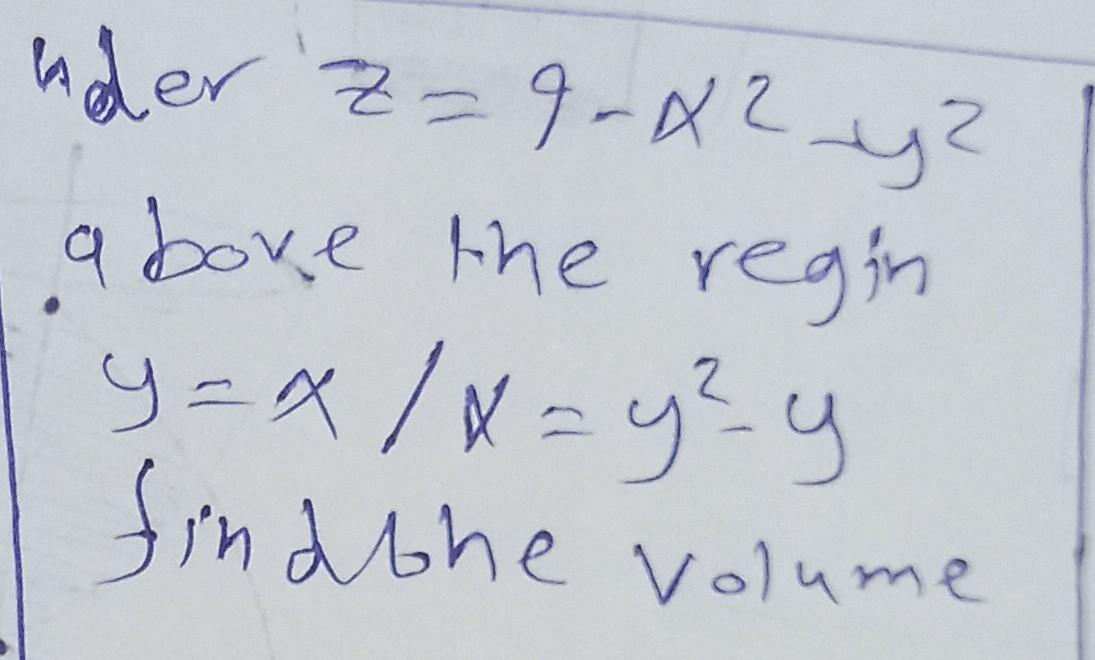 nder z = 9 - x² - y²
above the regin
y = x / x = y² - y
find the volume